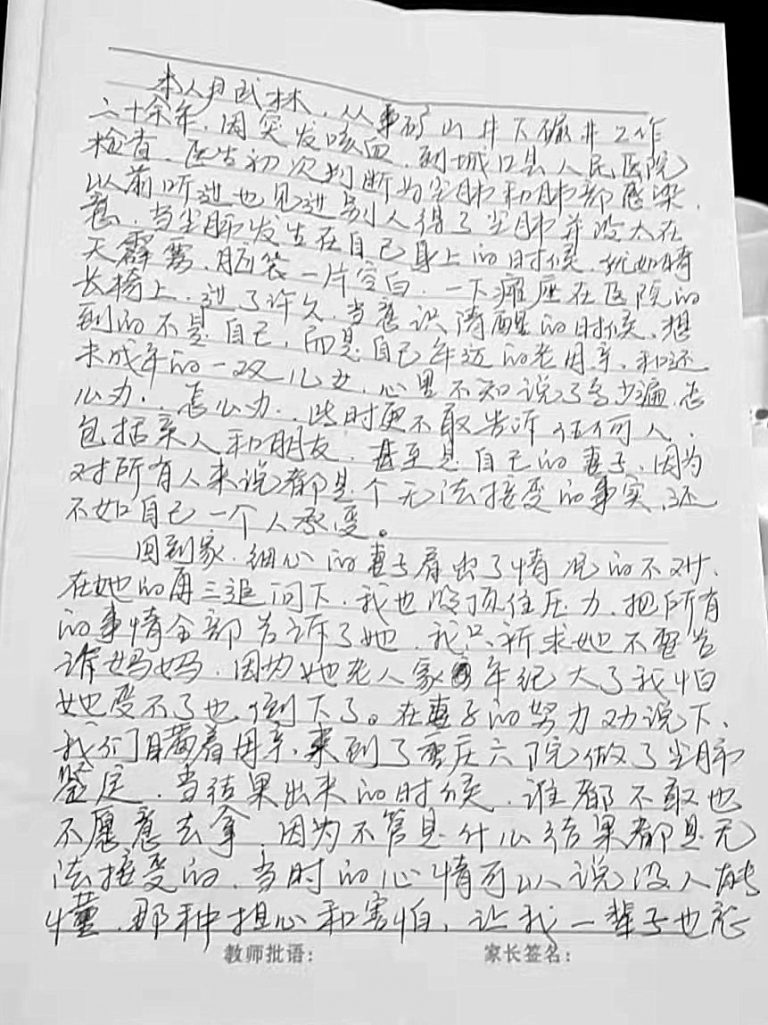 本人尹武林，从事矿山井下碾井工作
二十余年，因突发咳血，到城口县人民医院
检查，医生初次判断为尘肺和肺部感染，
以前听过也见过别人得了尘肺并没太在
意，当尘肺发生在自己身上的时候，犹如晴
天霹雳，脑袋一片空白，一下瘫座在医院的
长椅上，过了许久，当意识清醒的时候，想
到的不是自己，而是自己年迈的老母亲，和还
未成年的一双儿女，心里不知说了多少遍，怎
么办，怎么办，此时更不敢告诉任何人，
包括亲人和朋友，甚至是自己的妻子，因为
对所有人来说都是个无法接受的事实，还
不如自己一个人承受。
回到家，细心的妻子看出了情况的不对，
在她的再三追问下，我也没顶住压力，把所有
的事情全部告诉了她，我只祈求她不要告
诉妈妈，因为她老人家年纪大了我怕
她受不了也倒下了。在妻子的努力劝说下，
我们瞒着母亲，来到了重庆六院做了尘肺
鉴定，当结果出来的时候，谁都不敢也
不愿意去拿，因为不管是什么结果都是无
法接受的，当时的心情可以说没人能
懂，那种担心和害怕，让我一辈子也忘
教师批语： 家长签名：